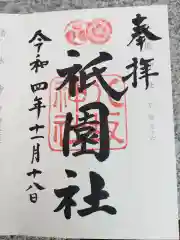 奉拝
祇園社
八坂神社
令和四年十一月十八日